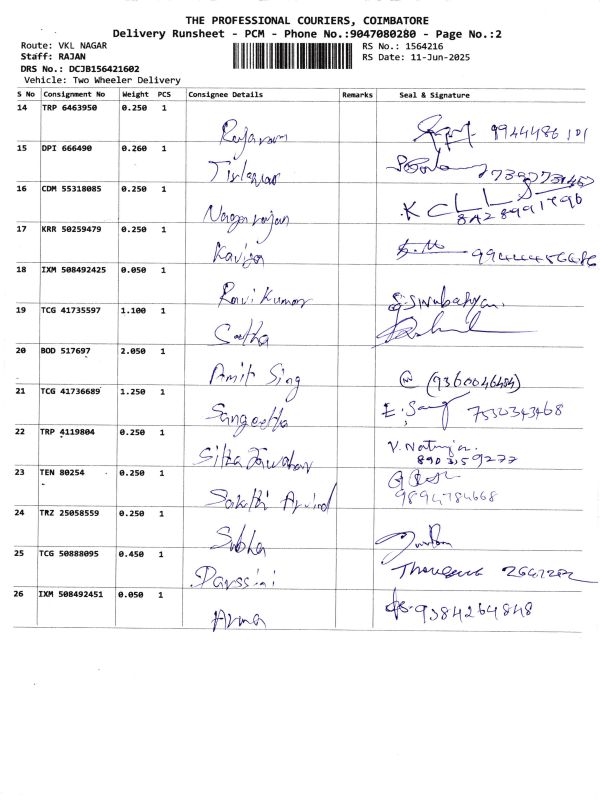 THE PROFESSIONAL COURIERS, COIMBATORE
Delivery Runsheet - PCM - Phone No.:9047080280 - Page No.:2
Route: VKL NAGAR RS No.: 1564216
Staff: RAJAN RS Date: 11-Jun-2025
DRS No.: DCJB156421602
Vehicle: Two Wheeler Delivery
S No Consignment No Weight PCS Consignee Details Remarks Seal & Signature
14 TRP 6463950 0.250 1
Rajaram
15 DPI 666490 0.260 1
16 CDM 55318085 0.250 1
Nagarajan
17 KRR 50259479 0.250 1
Kaviya
18 IXM 508492425 0.050 1
Ravi Kumar
19 TCG 41735597 1.100 1
20 BOD 517697 2.050 1
Amit Sing (9360046484)
21 TCG 41736689 1.250 1
Sangeetha 7530343468
22 TRP 4119804 0.250 1
23 TEN 80254 0.250 1
Sakthi Arvind 9894784668
24 TRZ 25058559 0.250 1
Subha
25 TCG 50888095 0.450 1
Darssini
26 IXM 508492451 0.050 1
9384264848